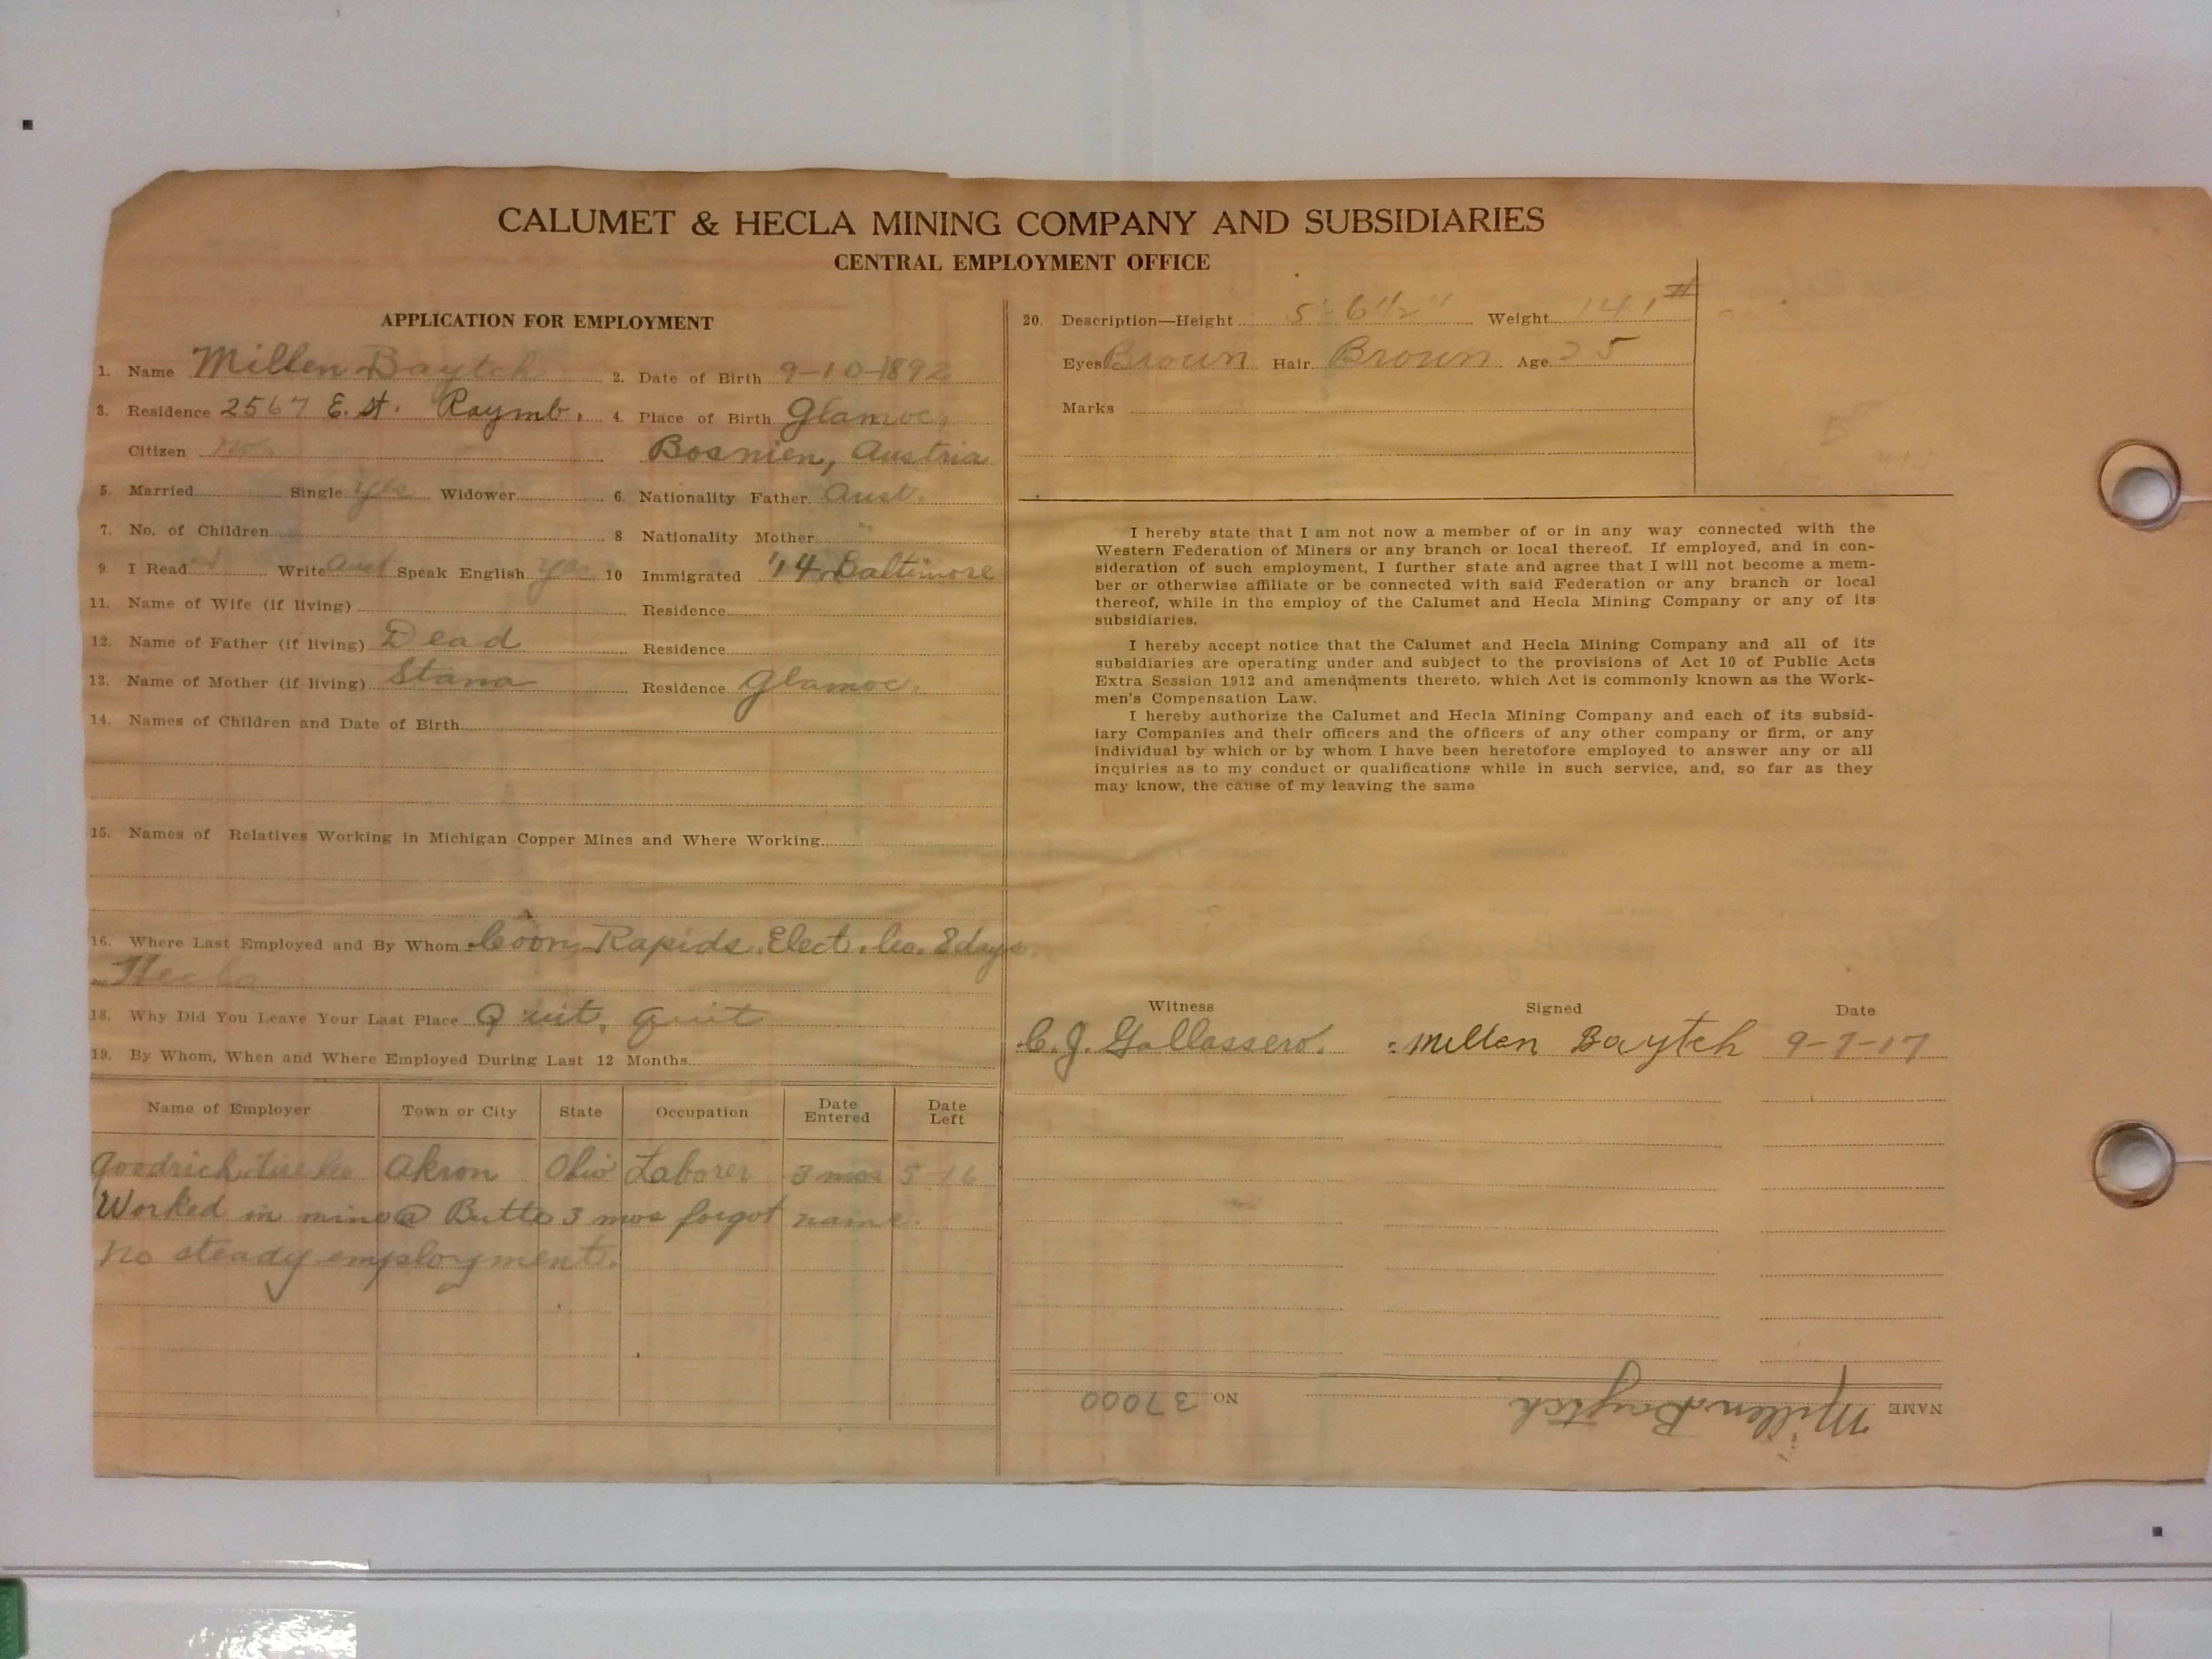 CALUMET & HECLA MINING COMPANY AND SUBSIDIARIES
CENTRAL EMPLOYMENT OFFICE
APPLICATION FOR EMPLOYMENT
1. Name Millen Baytch 2. Date of Birth 9-10-1892
3. Residence 2567 E. St. Raymb. 4. Place of Birth Glamoc,
Citizen no. Bosnien, Austria
5. Married Single yes Widower 6. Nationality Father Aust.
7. No. of Children 8 Nationality Mother "
9. I Read Write Aust Speak English yes 10 Immigrated '14 Baltimore
11. Name of Wife (if living) Residence
12. Name of Father (if living) Dead Residence
13. Name of Mother (if living) Stana Residence Glamoc.
14. Names of Children and Date of Birth
15. Names of Relatives Working in Michigan Copper Mines and Where Working
16. Where Last Employed and By Whom Coon Rapids Elect. Co. 8 days.
Hecla
18. Why Did You Leave Your Last Place Quit, quit
19. By Whom, When and Where Employed During Last 12 Months
Name of Employer Town or City State Occupation Date Entered Date Left
Goodrich Tire Co Akron Ohio Laborer 3 mos 5-16
Worked in mine @ Butte 3 mos forgot name.
No steady employment.
20. Description—Height 5'-6 1/2" Weight 141#
Eyes Brown Hair Brown Age 25
Marks
I hereby state that I am not now a member of or in any way connected with the
Western Federation of Miners or any branch or local thereof. If employed, and in con-
sideration of such employment, I further state and agree that I will not become a mem-
ber or otherwise affiliate or be connected with said Federation or any branch or local
thereof, while in the employ of the Calumet and Hecla Mining Company or any of its
subsidiaries.
I hereby accept notice that the Calumet and Hecla Mining Company and all of its
subsidiaries are operating under and subject to the provisions of Act 10 of Public Acts
Extra Session 1912 and amendments thereto, which Act is commonly known as the Work-
men's Compensation Law.
I hereby authorize the Calumet and Hecla Mining Company and each of its subsid-
iary Companies and their officers and the officers of any other company or firm, or any
individual by which or by whom I have been heretofore employed to answer any or all
inquiries as to my conduct or qualifications while in such service, and, so far as they
may know, the cause of my leaving the same
Witness Signed Date
C. J. Gallassero. Millen Baytch 9-7-17
NAME Millen Baytch NO 37000